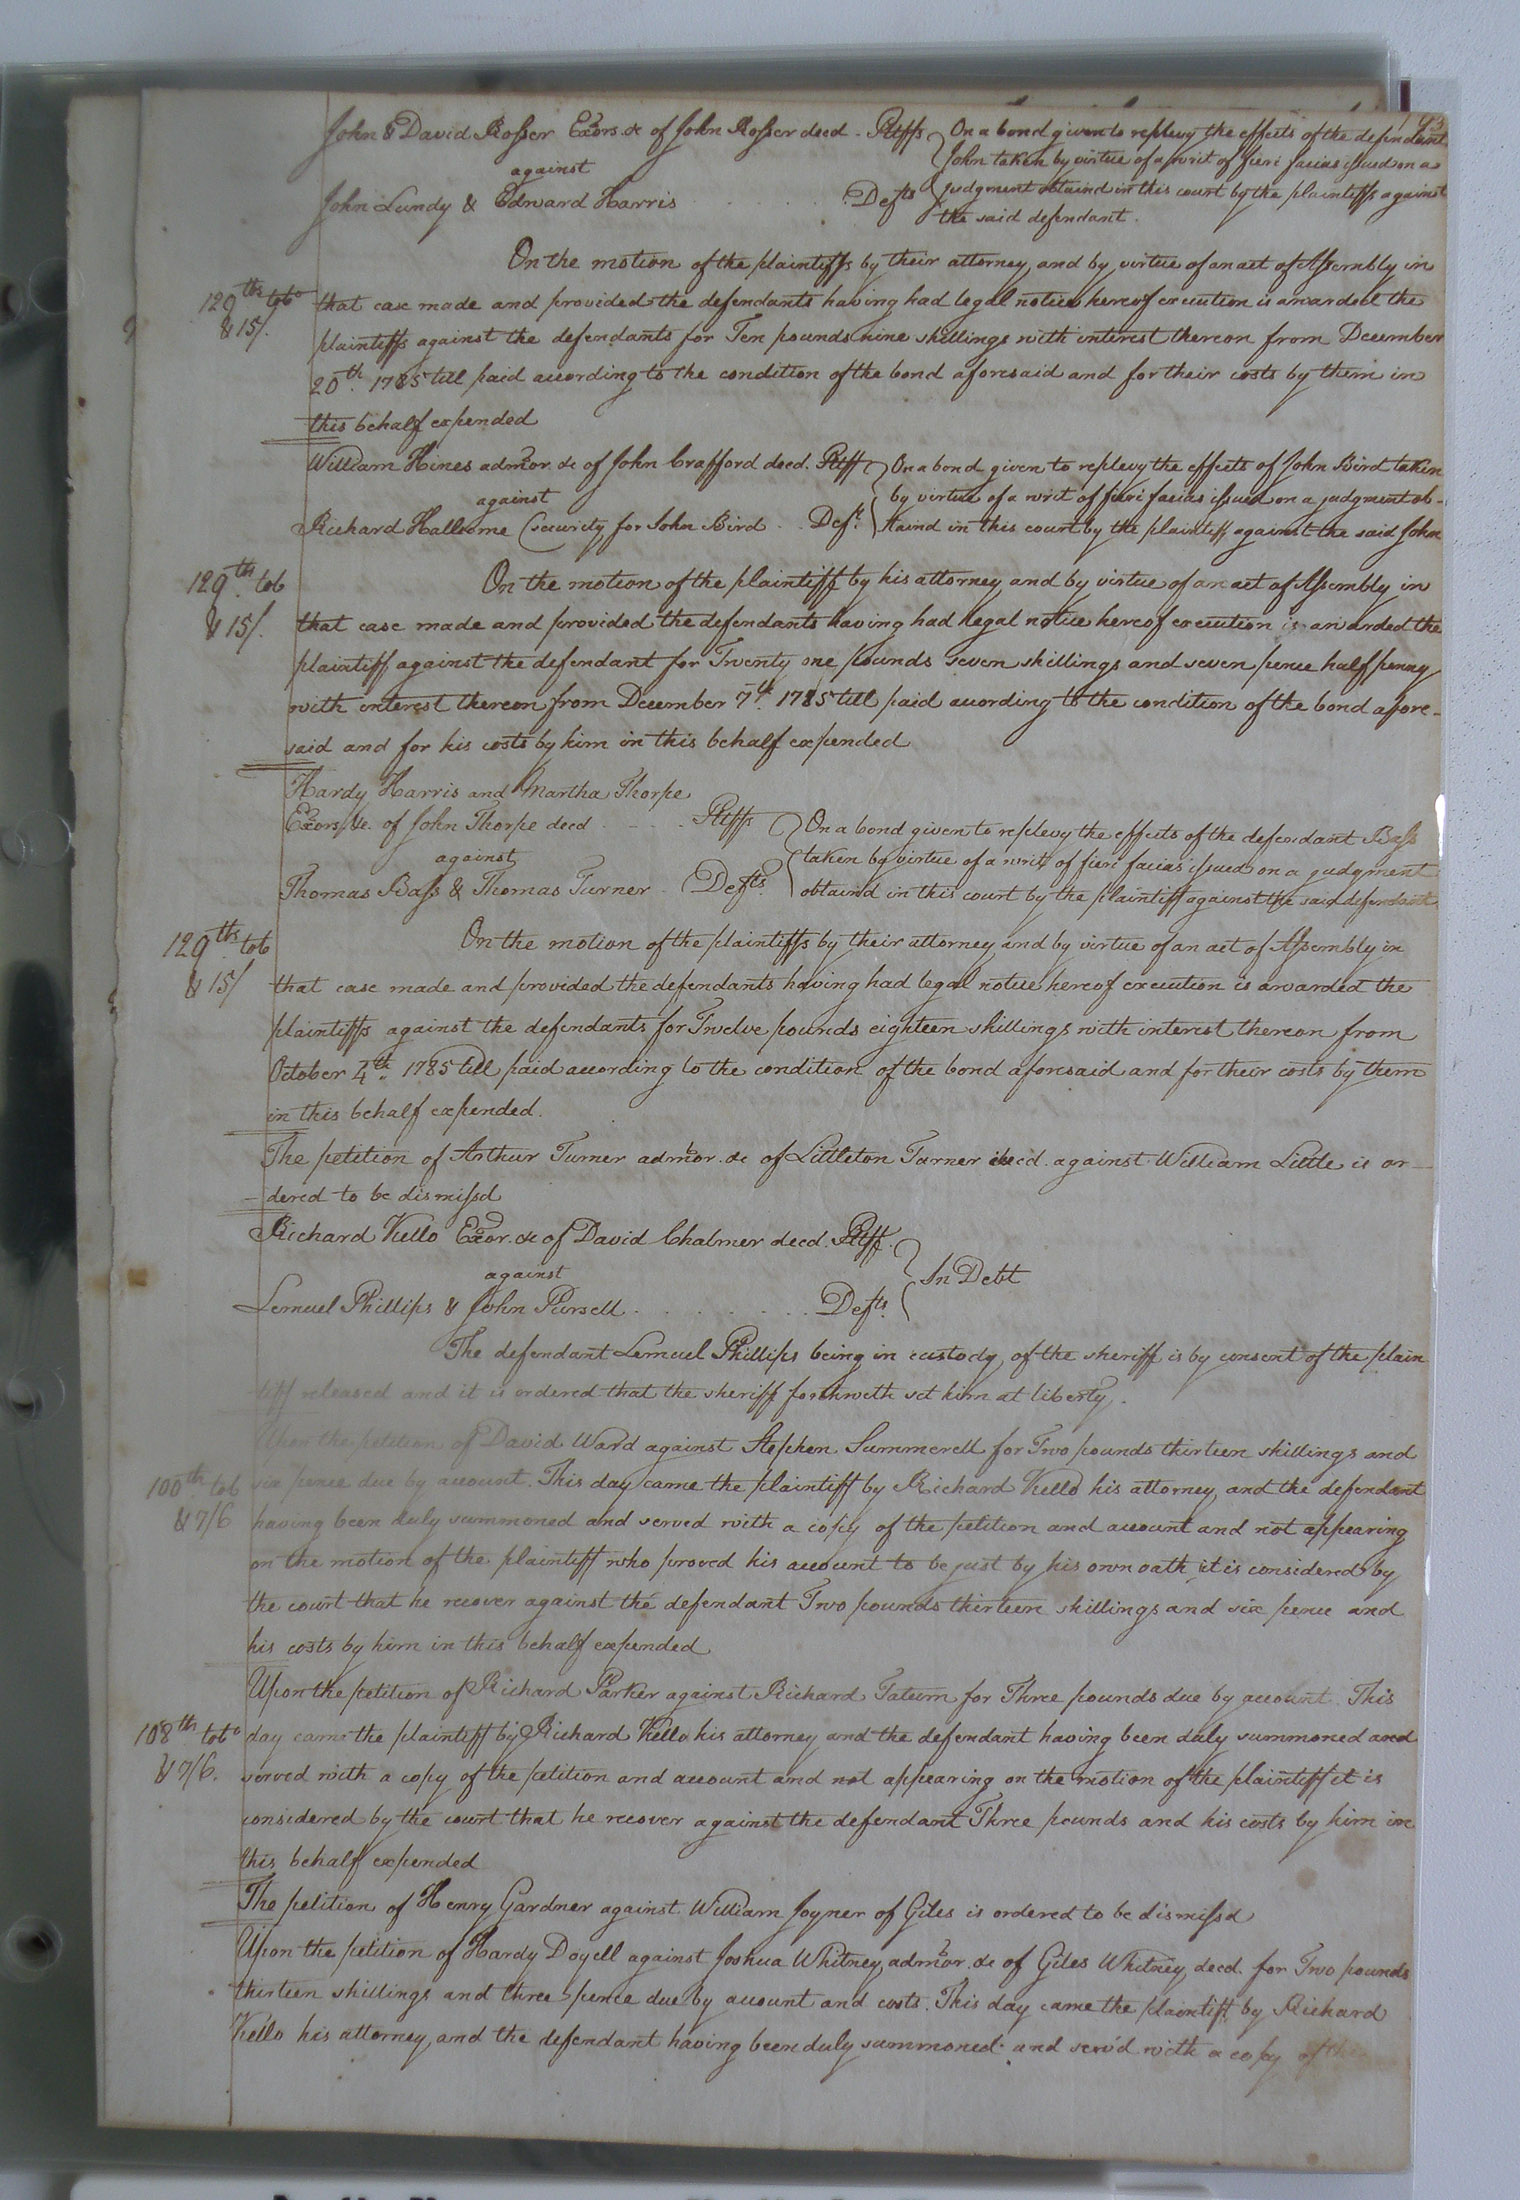 John & David Rosser Exors. &c of John Rosser decd - Pltffs
against
John Lundy & Edward Harris . . . . . Defts
On a bond given to replevy the effects of the defendant
John taken by virtue of a writ of fieri facias issued on a
judgment obtaind in this court by the plaintiffs against
the said defendant.
On the motion of the plaintiffs by their attorney and by virtue of an act of Assembly in
129th tobo
& 15/.
that case made and provided the defendants having had legal notice hereof execution is awarded the
plaintiffs against the defendants for Ten pounds nine shillings with interest thereon from December
20th. 1785 till paid according to the condition of the bond aforesaid and for their costs by them in
this behalf expended
William Hines admor. &c of John Crafford decd. Pltff
against
Richard Halleome (security for John Bird . . Deft.
On a bond given to replevy the effects of John Bird taken
by virtue of a writ of fieri facias issued on a judgment ob-
taind in this court by the plaintiff against the said John
129th. tob
& 15/.
On the motion of the plaintiff by his attorney and by virtue of an act of Assembly in
that case made and provided the defendants having had legal notice hereof execution is awarded the
plaintiff against the defendant for Twenty one pounds seven shillings and seven pence half penny
with interest thereon from December 7th. 1785 till paid according to the condition of the bond afore-
said and for his costs by him in this behalf expended
Hardy Harris and Martha Thorpe
Exors. &c. of John Thorpe decd . . . . Pltffs
against
Thomas Bass & Thomas Turner . Defts.
On a bond given to replevy the effects of the defendant Bass
taken by virtue of a writ of fieri facias issued on a judgment
obtaind in this court by the plaintiff against the said defendant
129th. tob
& 15/
On the motion of the plaintiffs by their attorney and by virtue of an act of Assembly in
that case made and provided the defendants having had legal notice hereof execution is awarded the
plaintiffs against the defendants for Twelve pounds eighteen shillings with interest thereon from
October 4th. 1785 till paid according to the condition of the bond aforesaid and for their costs by them
in this behalf expended.
The petition of Arthur Turner admor. &c of Littleton Turner decd. against William Little is or-
-dered to be dismissd
Richard Kello Exor. &c of David Chalmer decd. Pltff.
against
Lemuel Phillips & John Pursell . . . . . . . . Defts.
In Debt
The defendant Lemuel Phillips being in custody of the sheriff is by consent of the plain
tiff released and it is ordered that the sheriff forthwith set him at liberty.
Upon the petition of David Ward against Stephen Summerell for Two pounds thirteen shillings and
100th. tob
& 7/6
six pence due by account. This day came the plaintiff by Richard Kello his attorney and the defendant
having been duly summoned and served with a copy of the petition and account and not appearing
on the motion of the plaintiff who proved his account to be just by his own oath it is considered by
the court that he recover against the defendant Two pounds thirteen shillings and six pence and
his costs by him in this behalf expended
Upon the petition of Richard Parker against Richard Tatum for Three pounds due by account. This
108th tobo
& 7/6.
day came the plaintiff by Richard Kello his attorney and the defendant having been duly summoned and
served with a copy of the petition and account and not appearing on the motion of the plaintiff it is
considered by the court that he recover against the defendant Three pounds and his costs by him in
this behalf expended
The petition of Henry Gardner against William Joyner of Giles is ordered to be dismissd
Upon the petition of Hardy Doyell against Joshua Whitney admor. &c of Giles Whitney decd. for Two pounds
thirteen shillings and three pence due by account and costs. This day came the plaintiff by Richard
Kello his attorney and the defendant having been duly summoned and serv'd with a copy of the